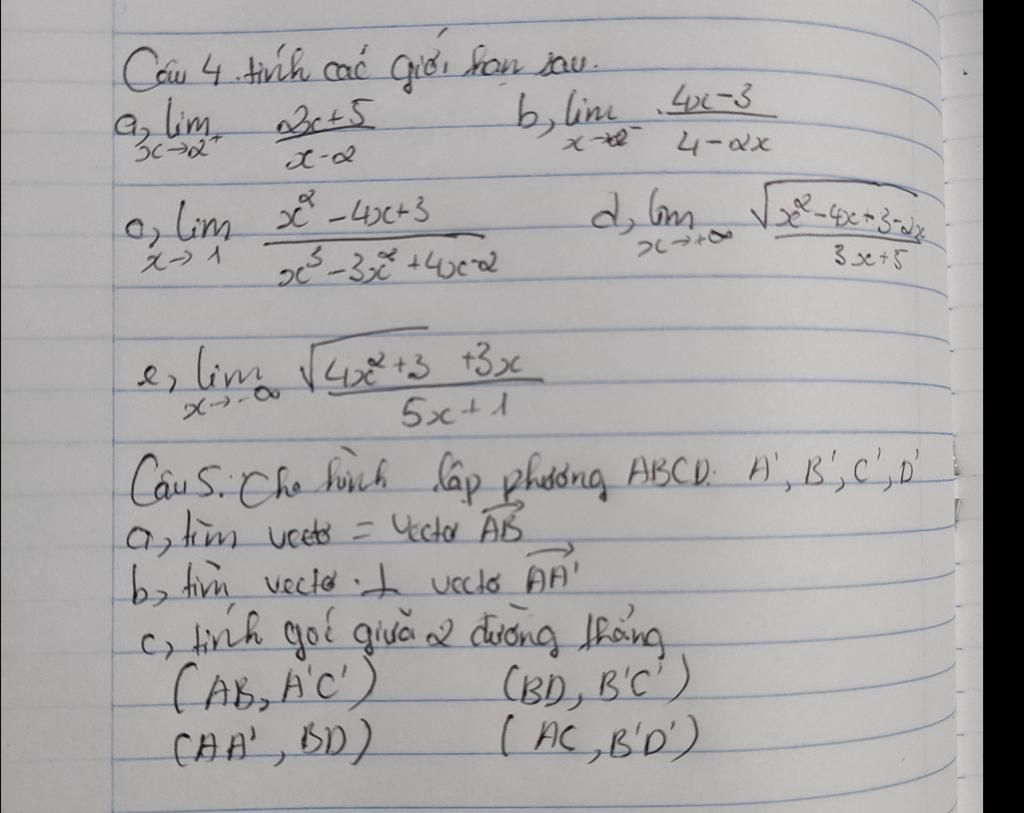 Câu 4. tính các giới hạn sau.
a, lim x→2⁺ (2x+5)/(x-2) b, lim x→2⁻ (4x-3)/(4-2x)
c, lim x→1 (x²-4x+3)/(x³-3x²+4x-2) d, lim x→+∞ √(x²-4x+3-2x)/(3x+5)
e, lim x→-∞ (√(4x²+3) +3x)/(5x+1)
Câu 5: Cho hình lập phương ABCD. A', B', C', D'
a, tìm vectơ = vectơ \overrightarrow{AB}
b, tìm vectơ ⊥ vectơ \overrightarrow{AA'}
c, tính góc giữa 2 đường thẳng
(AB, A'C') (BD, B'C')
(AA', BD) (AC, B'D')